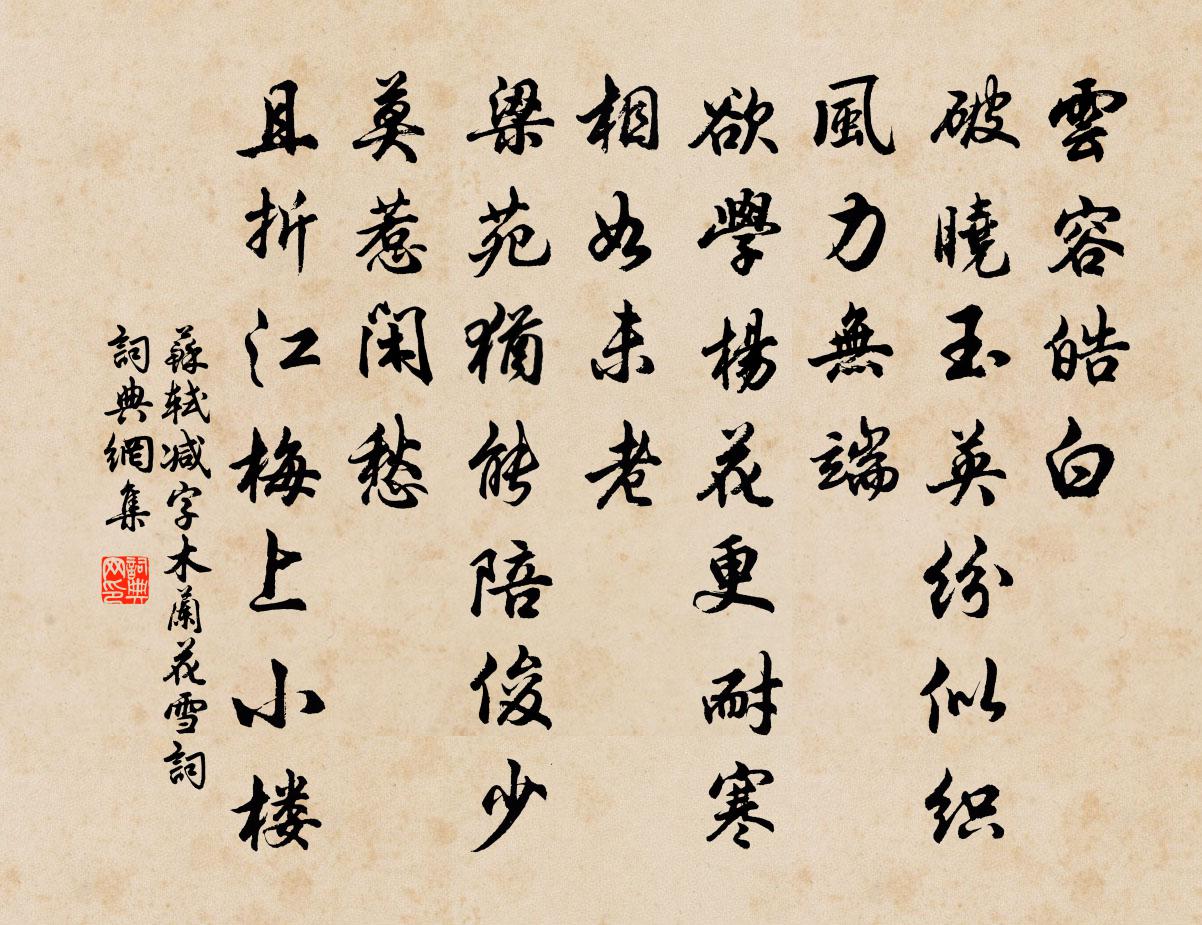 雲容皓白
破曉玉英紛似织
風力無端
欲學楊花更耐寒
相如未老
梁苑猶能陪俊少
莫惹闲愁
且折江梅上小楼
蘇軾减字木蘭花雪詞
詞典網集
詞典网印